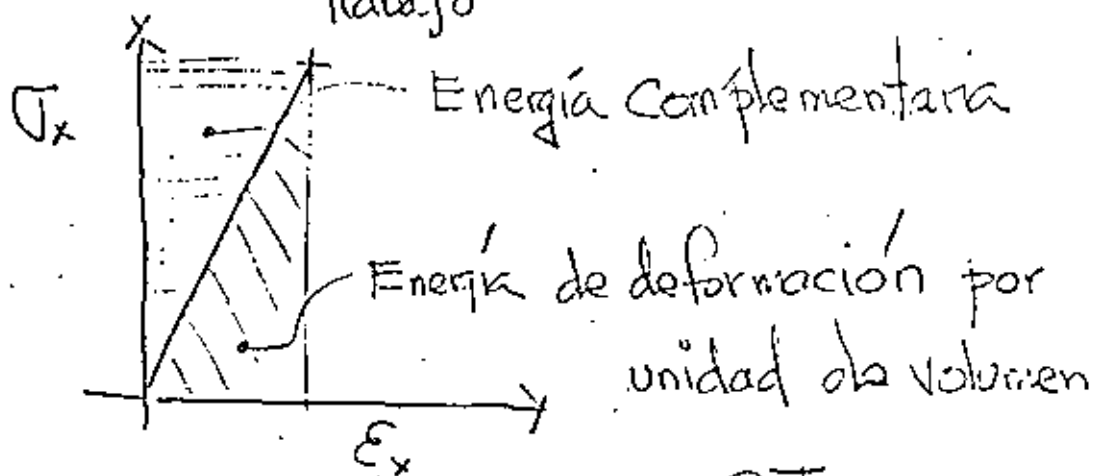 Trabajo
σx
Energía Complementaria
Energía de deformación por
unidad de Volumen
εx